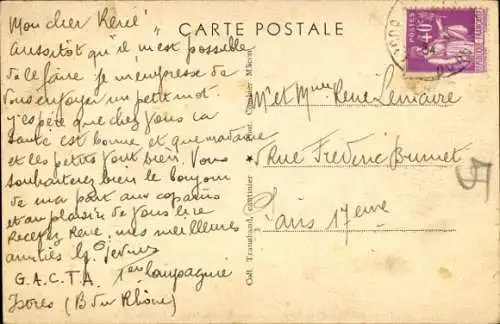 CARTE POSTALE
Mon cher René
Aussitôt qu'il m'est possible
de le faire je m'empresse de
vous envoyer un petit mot.
J'espère que chez vous la
santé est bonne et que madame
et les petits vont bien. Vous
souhaiterez bien le bonjour
de ma part aux copains
et au plaisir de vous lire
Recevez René, mes meilleures
amitiés
G.A.C.T.A. 1ère Compagnie
Istres (B du Rhône)
POSTES
40
Mr et Mme René Lemaire
5 Rue Frédéric Brunet
Paris 17ème
Coll. Tranchand, cantinier